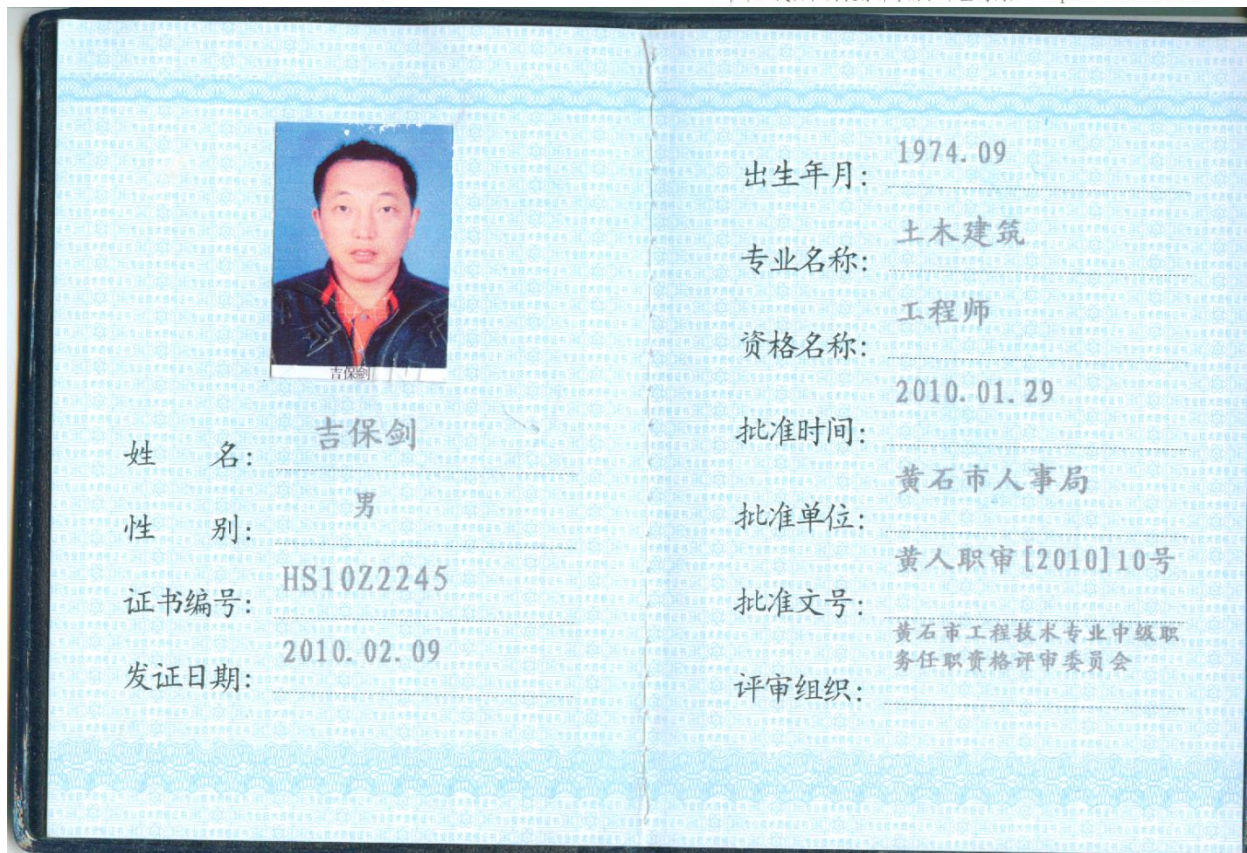 吉保剑
姓 名: 吉保剑
性 别: 男
证书编号: HS10Z2245
发证日期: 2010.02.09
出生年月: 1974.09
专业名称: 土木建筑
资格名称: 工程师
批准时间: 2010.01.29
批准单位: 黄石市人事局
批准文号: 黄人职审[2010]10号
评审组织: 黄石市工程技术专业中级职
务任职资格评审委员会